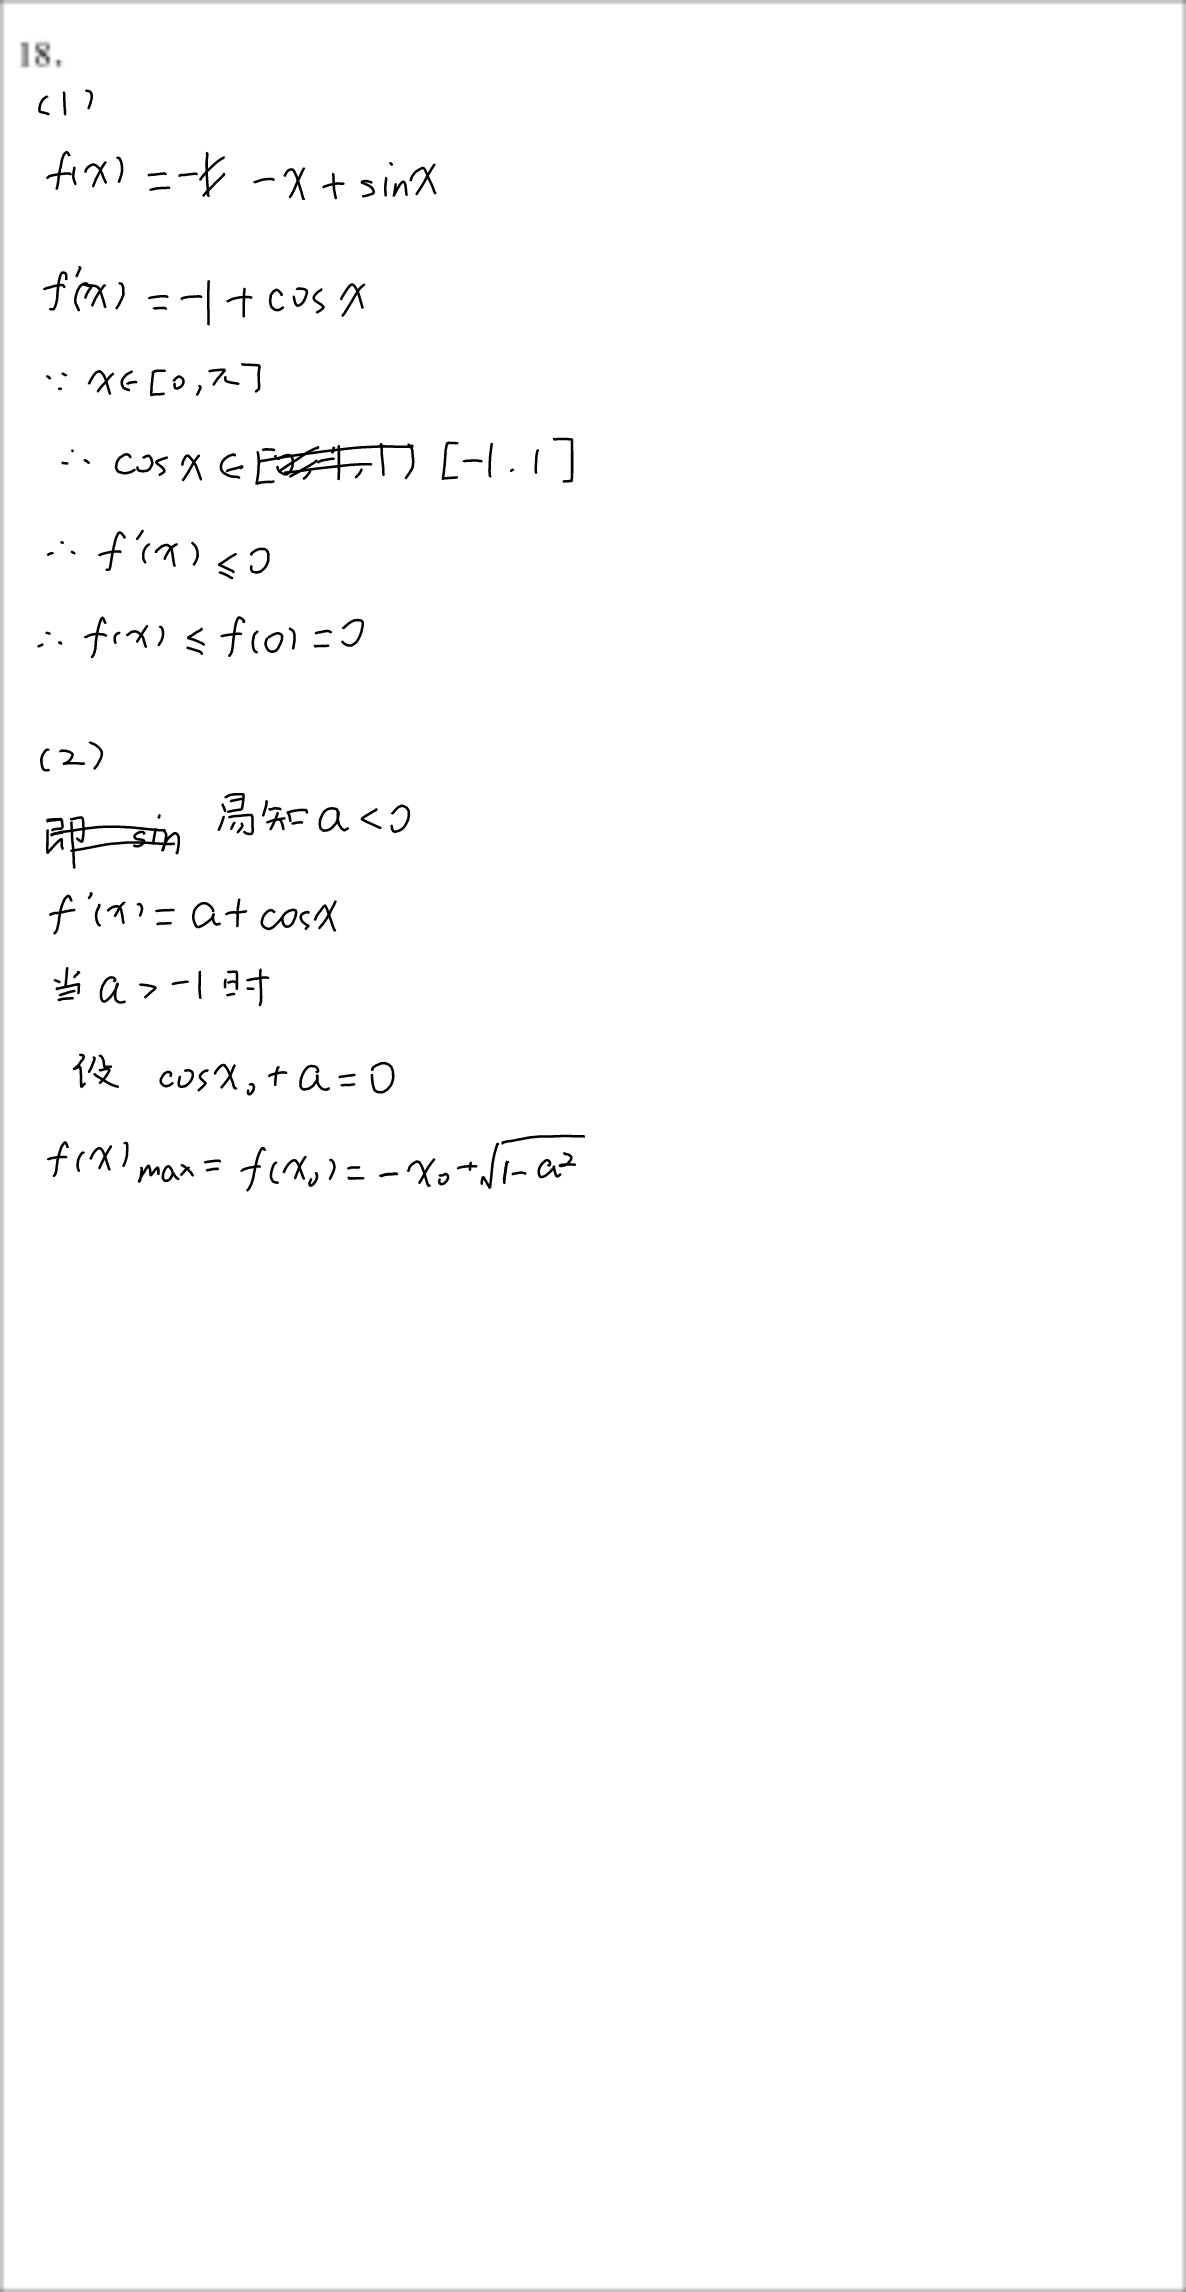 18.
(1)
f(x) = - - x + sinx
f'(x) = -1 + cos x
∵ x∈[0,π]
∴ cos x ∈ [-1.1]
∴ f'(x) ≤ 0
∴ f(x) ≤ f(0) = 0
(2)
即 sin 易知 a < 0
f'(x) = a + cosx
当 a > -1 时
设 cosx₀ + a = 0
f(x)max = f(x₀) = -x₀ + √1-a²